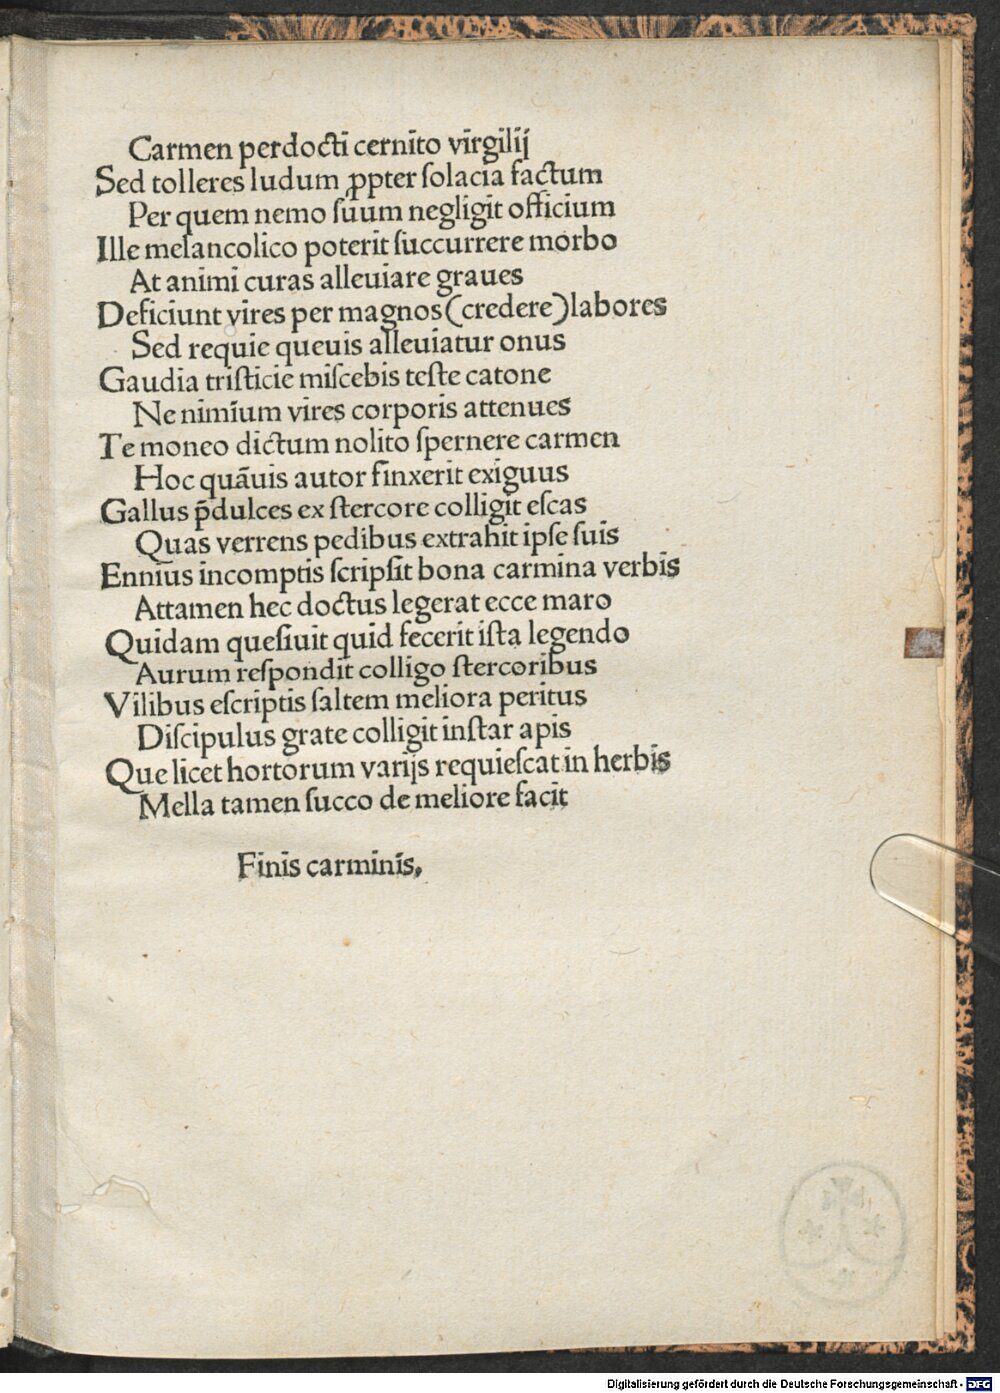 Carmen perdocti cernito virgilij
Sed tolleres ludum ꝓpter ſolacia factum
Per quem nemo ſuum negligit officium
Ille melancolico poterit ſuccurrere morbo
At animi curas alleuiare graues
Deficiunt vires per magnos (credere) labores
Sed requie queuis alleuiatur onus
Gaudia triſticie miſcebis teſte catone
Ne nimium vires corporis attenues
Te moneo dictum nolito ſpernere carmen
Hoc quãuis autor finxerit exiguus
Gallus p̃dulces ex ſtercore colligit eſcas
Quas verrens pedibus extrahit ipſe ſuis
Ennius incomptis ſcripſit bona carmina verbis
Attamen hec doctus legerat ecce maro
Quidam queſiuit quid fecerit iſta legendo
Aurum reſpondit colligo ſtercoribus
Vilibus eſcriptis ſaltem meliora peritus
Diſcipulus grate colligit inſtar apis
Que licet hortorum varijs requieſcat in herbis
Mella tamen ſucco de meliore facit
Finis carminis.
Digitalisierung gefördert durch die Deutsche Forschungsgemeinschaft - DFG